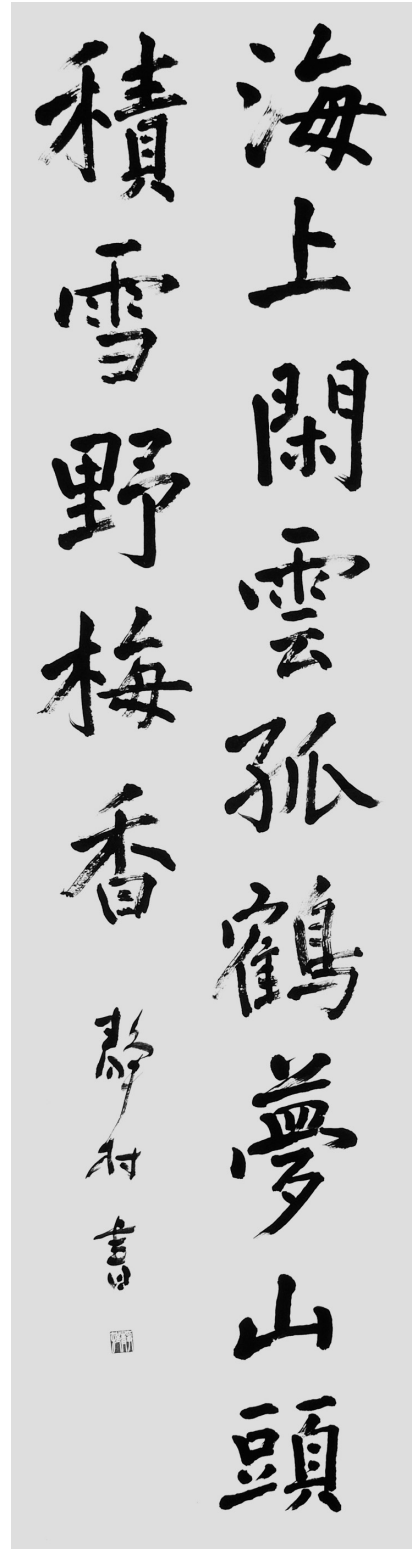 海上閑雲孤鶴夢山頭
積雪野梅香 靜村書